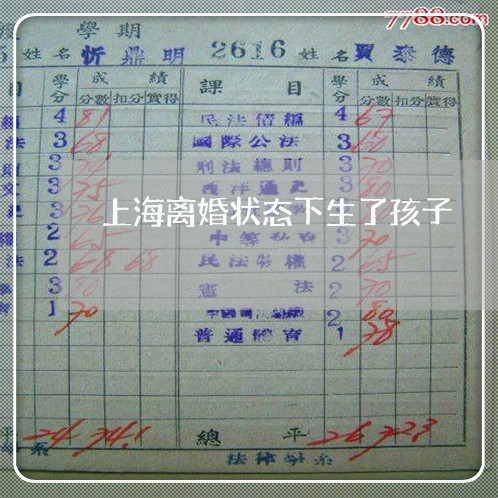 7788.com
學期
姓名 忻鼎明 2616 姓名 賈泰德
目 學分 成績 課目 學分 成績
分數 扣分 實得 分數 扣分 實得
4 81 民法債編 4 67
法 3 68 國際公法 3 60
3 刑法總則 3 70
3 75 西洋通史 3 80
上海离婚状态下生了孩子
2 65 3 70
法 2 68 68 民法物權 2 65
3 80 憲法 2 70
1 70 2 80
普通體育 1 78
平 24 74.1 總平 26 72.3
系 法律學系